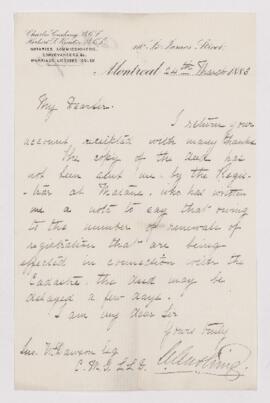 Charles Cushing B.C.L
Herbert S. Hunter B.C.L.
NOTARIES, COMMISSIONERS,
CONVEYANCERS &c.
MARRIAGE LICENSE ISSUER
St. Francois
Montreal 24th March 1883
My Dear Sir.
I return your
account, receipted with many thanks
The copy of the deed has
not been sent me by the Regis-
trar at Matane, who has written
me a note to say that owing
to the number of renewals of
registration that are being
effected in connection with the
Cadastre, the deed may be
delayed a few days.
I am my dear Sir
Yours truly
C. Cushing
Dawson Esq
C. M. G. L.L.D.